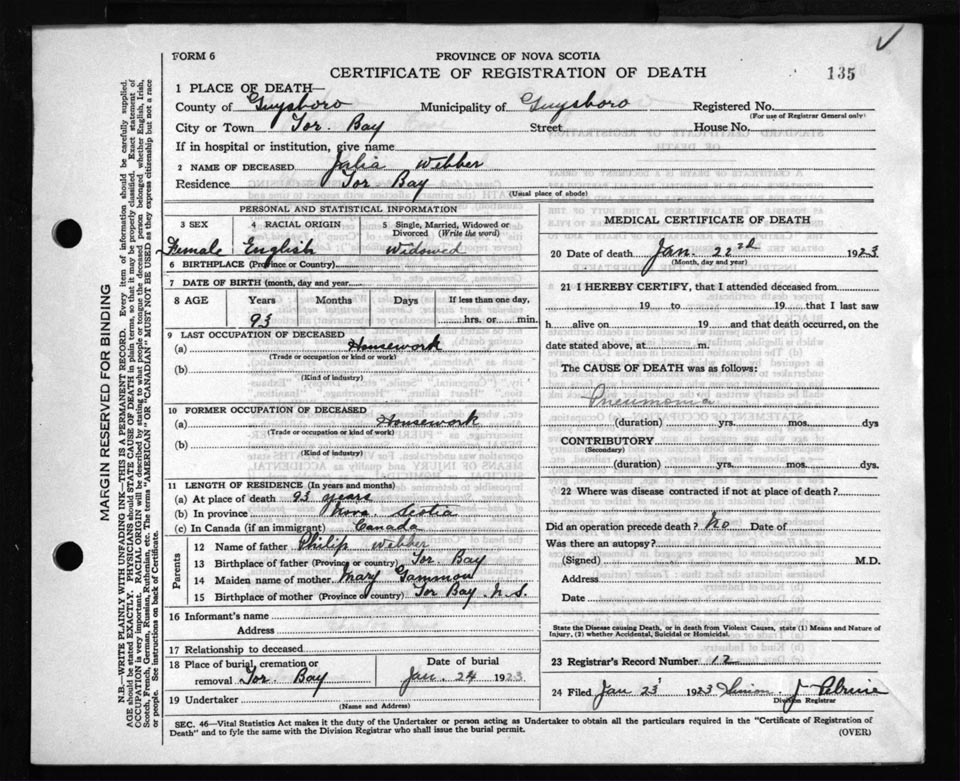 FORM 6
PROVINCE OF NOVA SCOTIA
CERTIFICATE OF REGISTRATION OF DEATH
135
1 PLACE OF DEATH—
County of Guysboro Municipality of Guysboro Registered No.
(For use of Registrar General only)
City or Town Tor Bay Street House No.
If in hospital or institution, give name
2 NAME OF DECEASED Julia Webber
Residence Tor Bay
(Usual place of abode)
PERSONAL AND STATISTICAL INFORMATION
3 SEX 4 RACIAL ORIGIN 5 Single, Married, Widowed or Divorced (Write the word)
Female English Widowed
6 BIRTHPLACE (Province or Country)
7 DATE OF BIRTH (month, day and year)
8 AGE Years Months Days If less than one day,
93 hrs. or min.
9 LAST OCCUPATION OF DECEASED
(a) Housework
(Trade or occupation or kind or work)
(b)
(Kind of industry)
10 FORMER OCCUPATION OF DECEASED
(a) Housework
(Trade or occupation or kind of work)
(b)
(Kind of industry)
11 LENGTH OF RESIDENCE (In years and months)
(a) At place of death 93 years
(b) In province Nova Scotia
(c) In Canada (if an immigrant) Canada
Parents
12 Name of father Philip Webber
13 Birthplace of father (Province or country) Tor Bay
14 Maiden name of mother Mary Gammon
15 Birthplace of mother (Province or country) Tor Bay N.S.
16 Informant's name
Address
17 Relationship to deceased
18 Place of burial, cremation or Date of burial
removal Tor Bay Jan. 24 1923
19 Undertaker
(Name and Address)
MEDICAL CERTIFICATE OF DEATH
20 Date of death Jan. 22nd 1923
(Month, day and year)
21 I HEREBY CERTIFY, that I attended deceased from
19 to 19 that I last saw
h alive on 19 and that death occurred, on the
date stated above, at m.
The CAUSE OF DEATH was as follows:
Pneumonia
(duration) yrs. mos. dys
CONTRIBUTORY
(Secondary)
(duration) yrs. mos. dys.
22 Where was disease contracted if not at place of death?
Did an operation precede death? No Date of
Was there an autopsy?
(Signed) M.D.
Address
Date
State the Disease causing Death, or in death from Violent Causes, state (1) Means and Nature of
Injury, (2) whether Accidental, Suicidal or Homicidal.
23 Registrar's Record Number 12
24 Filed Jan 23 1923 Simon J
Division Registrar
SEC. 46—Vital Statistics Act makes it the duty of the Undertaker or person acting as Undertaker to obtain all the particulars required in the "Certificate of Registration of
Death" and to fyle the same with the Division Registrar who shall issue the burial permit.
(OVER)
MARGIN RESERVED FOR BINDING
N.B.—WRITE PLAINLY WITH UNFADING INK—THIS IS A PERMANENT RECORD. Every item of information should be carefully supplied.
AGE should be stated EXACTLY. PHYSICIANS should STATE CAUSE OF DEATH in plain terms, so that it may be properly classified. Exact statement of
OCCUPATION is very important. RACIAL ORIGIN will be described by stating to what people or tongue the deceased person belonged whether English, Irish,
Scotch, French, German, Russian, Ruthenian, etc. The terms "AMERICAN" OR "CANADIAN" MUST NOT BE USED as they express citizenship but not a race
or people. See instructions on back of Certificate.